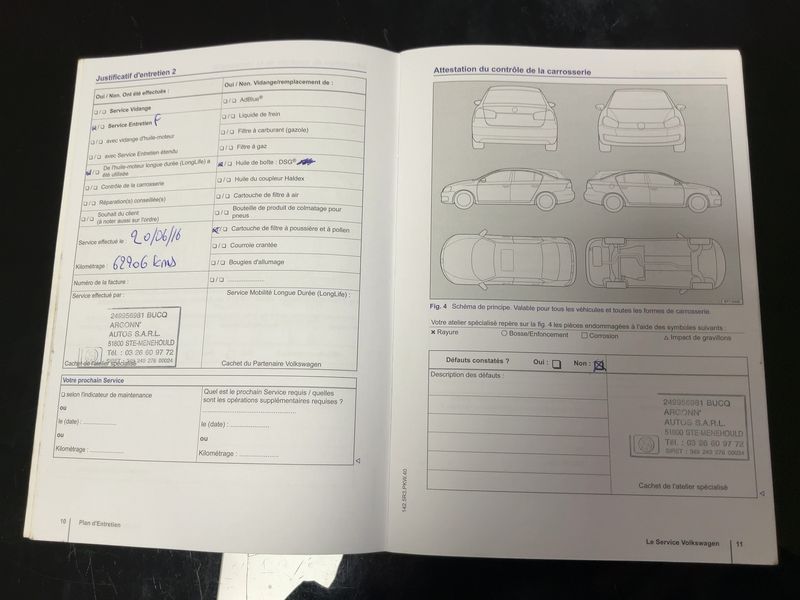 Justificatif d'entretien 2
Oui / Non. Ont été effectués :
❏ / ❏ Service Vidange
☒ / ❏ Service Entretien F
❏ / ❏ avec vidange d'huile-moteur
❏ / ❏ avec Service Entretien étendu
☒ / ❏ De l'huile-moteur longue durée (LongLife) a
été utilisée
❏ / ❏ Contrôle de la carrosserie
❏ / ❏ Réparation(s) conseillée(s)
❏ / ❏ Souhait du client
(à noter aussi sur l'ordre)
Service effectué le : 20/06/16
Kilométrage : 62906 kms
Numéro de la facture :
Service effectué par :
249956981 BUCQ
ARGONN'
AUTOS S.A.R.L.
51800 STE-MENEHOULD
Tél. : 03 26 60 97 72
SIRET : 349 243 276 00024
Cachet de l'atelier spécialisé
Oui / Non. Vidange/remplacement de :
❏ / ❏ AdBlue®
❏ / ❏ Liquide de frein
❏ / ❏ Filtre à carburant (gazole)
❏ / ❏ Filtre à gaz
☒ / ❏ Huile de boîte : DSG®
❏ / ❏ Huile du coupleur Haldex
❏ / ❏ Cartouche de filtre à air
❏ / ❏ Bouteille de produit de colmatage pour
pneus
☒ / ❏ Cartouche de filtre à poussière et à pollen
❏ / ❏ Courroie crantée
❏ / ❏ Bougies d'allumage
❏ / ❏ ....................
Service Mobilité Longue Durée (LongLife) :
Cachet du Partenaire Volkswagen
Votre prochain Service
❏ selon l'indicateur de maintenance
ou
le (date) : ..............
ou
Kilométrage : ..............
Quel est le prochain Service requis / quelles
sont les opérations supplémentaires requises ?
le (date) : ................
ou
Kilométrage : ................
10 Plan d'Entretien
Attestation du contrôle de la carrosserie
Fig. 4 Schéma de principe. Valable pour tous les véhicules et toutes les formes de carrosserie.
Votre atelier spécialisé repère sur la fig. 4 les pièces endommagées à l'aide des symboles suivants :
× Rayure ○ Bosse/Enfoncement □ Corrosion △ Impact de gravillons
Défauts constatés ? Oui : ❏ Non : ☒
Description des défauts :
249956981 BUCQ
ARGONN'
AUTOS S.A.R.L.
51800 STE-MENEHOULD
Tél. : 03 26 60 97 72
SIRET : 349 243 276 00024
Cachet de l'atelier spécialisé
142.5R3.PKW.40
Le Service Volkswagen 11